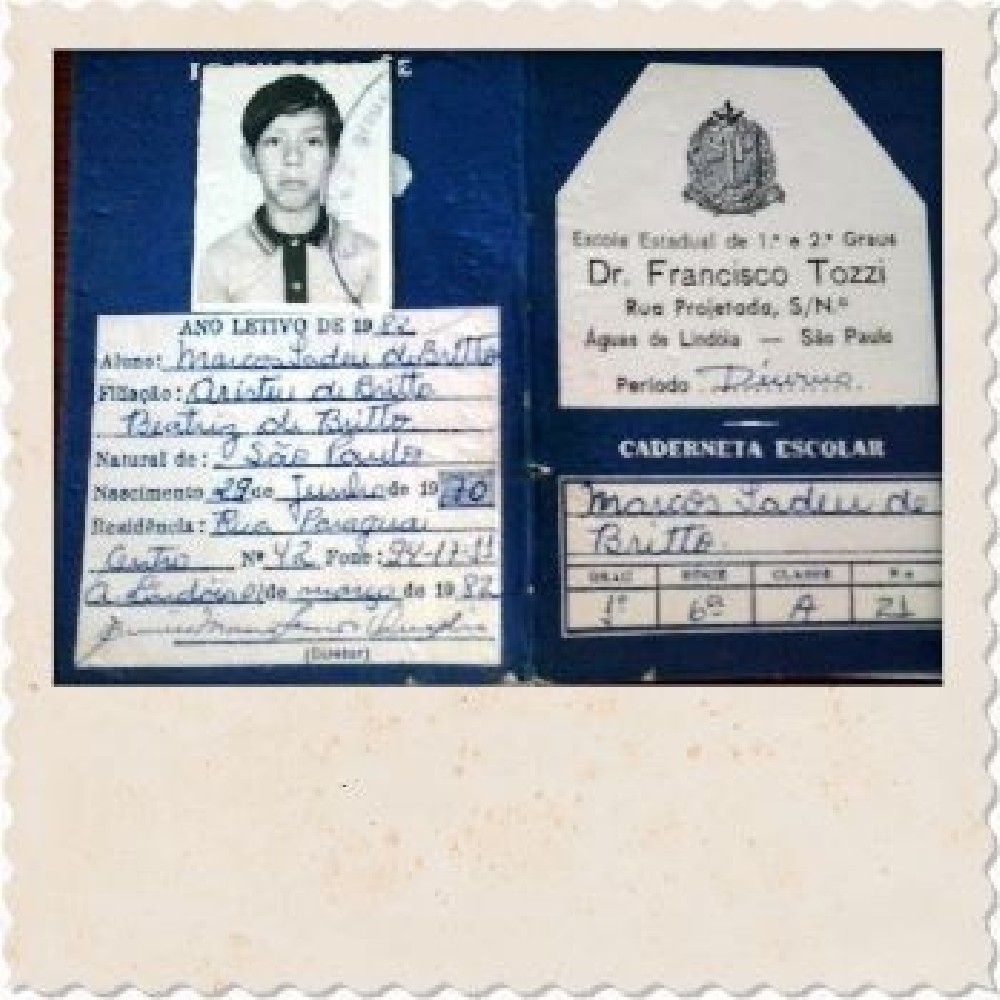 ANO LETIVO DE 1982
Aluno: Marcos Tadeu de Britto
Filiação: Aristeu de Britto
Beatriz de Britto
Natural de: São Paulo
Nascimento 29 de Junho de 1970
Residência: Rua Paraguai
Centro Nº 42 Fone: 94-17-11
de março de 1982
(Diretor)
Escola Estadual de 1.º e 2.º Graus
Dr. Francisco Tozzi
Rua Projetada, S/N.º
Águas de Lindóia — São Paulo
Período Diurno.
CADERNETA ESCOLAR
Marcos Tadeu de
Britto.
GRAU SÉRIE CLASSE N.o
1º 6ª A 21